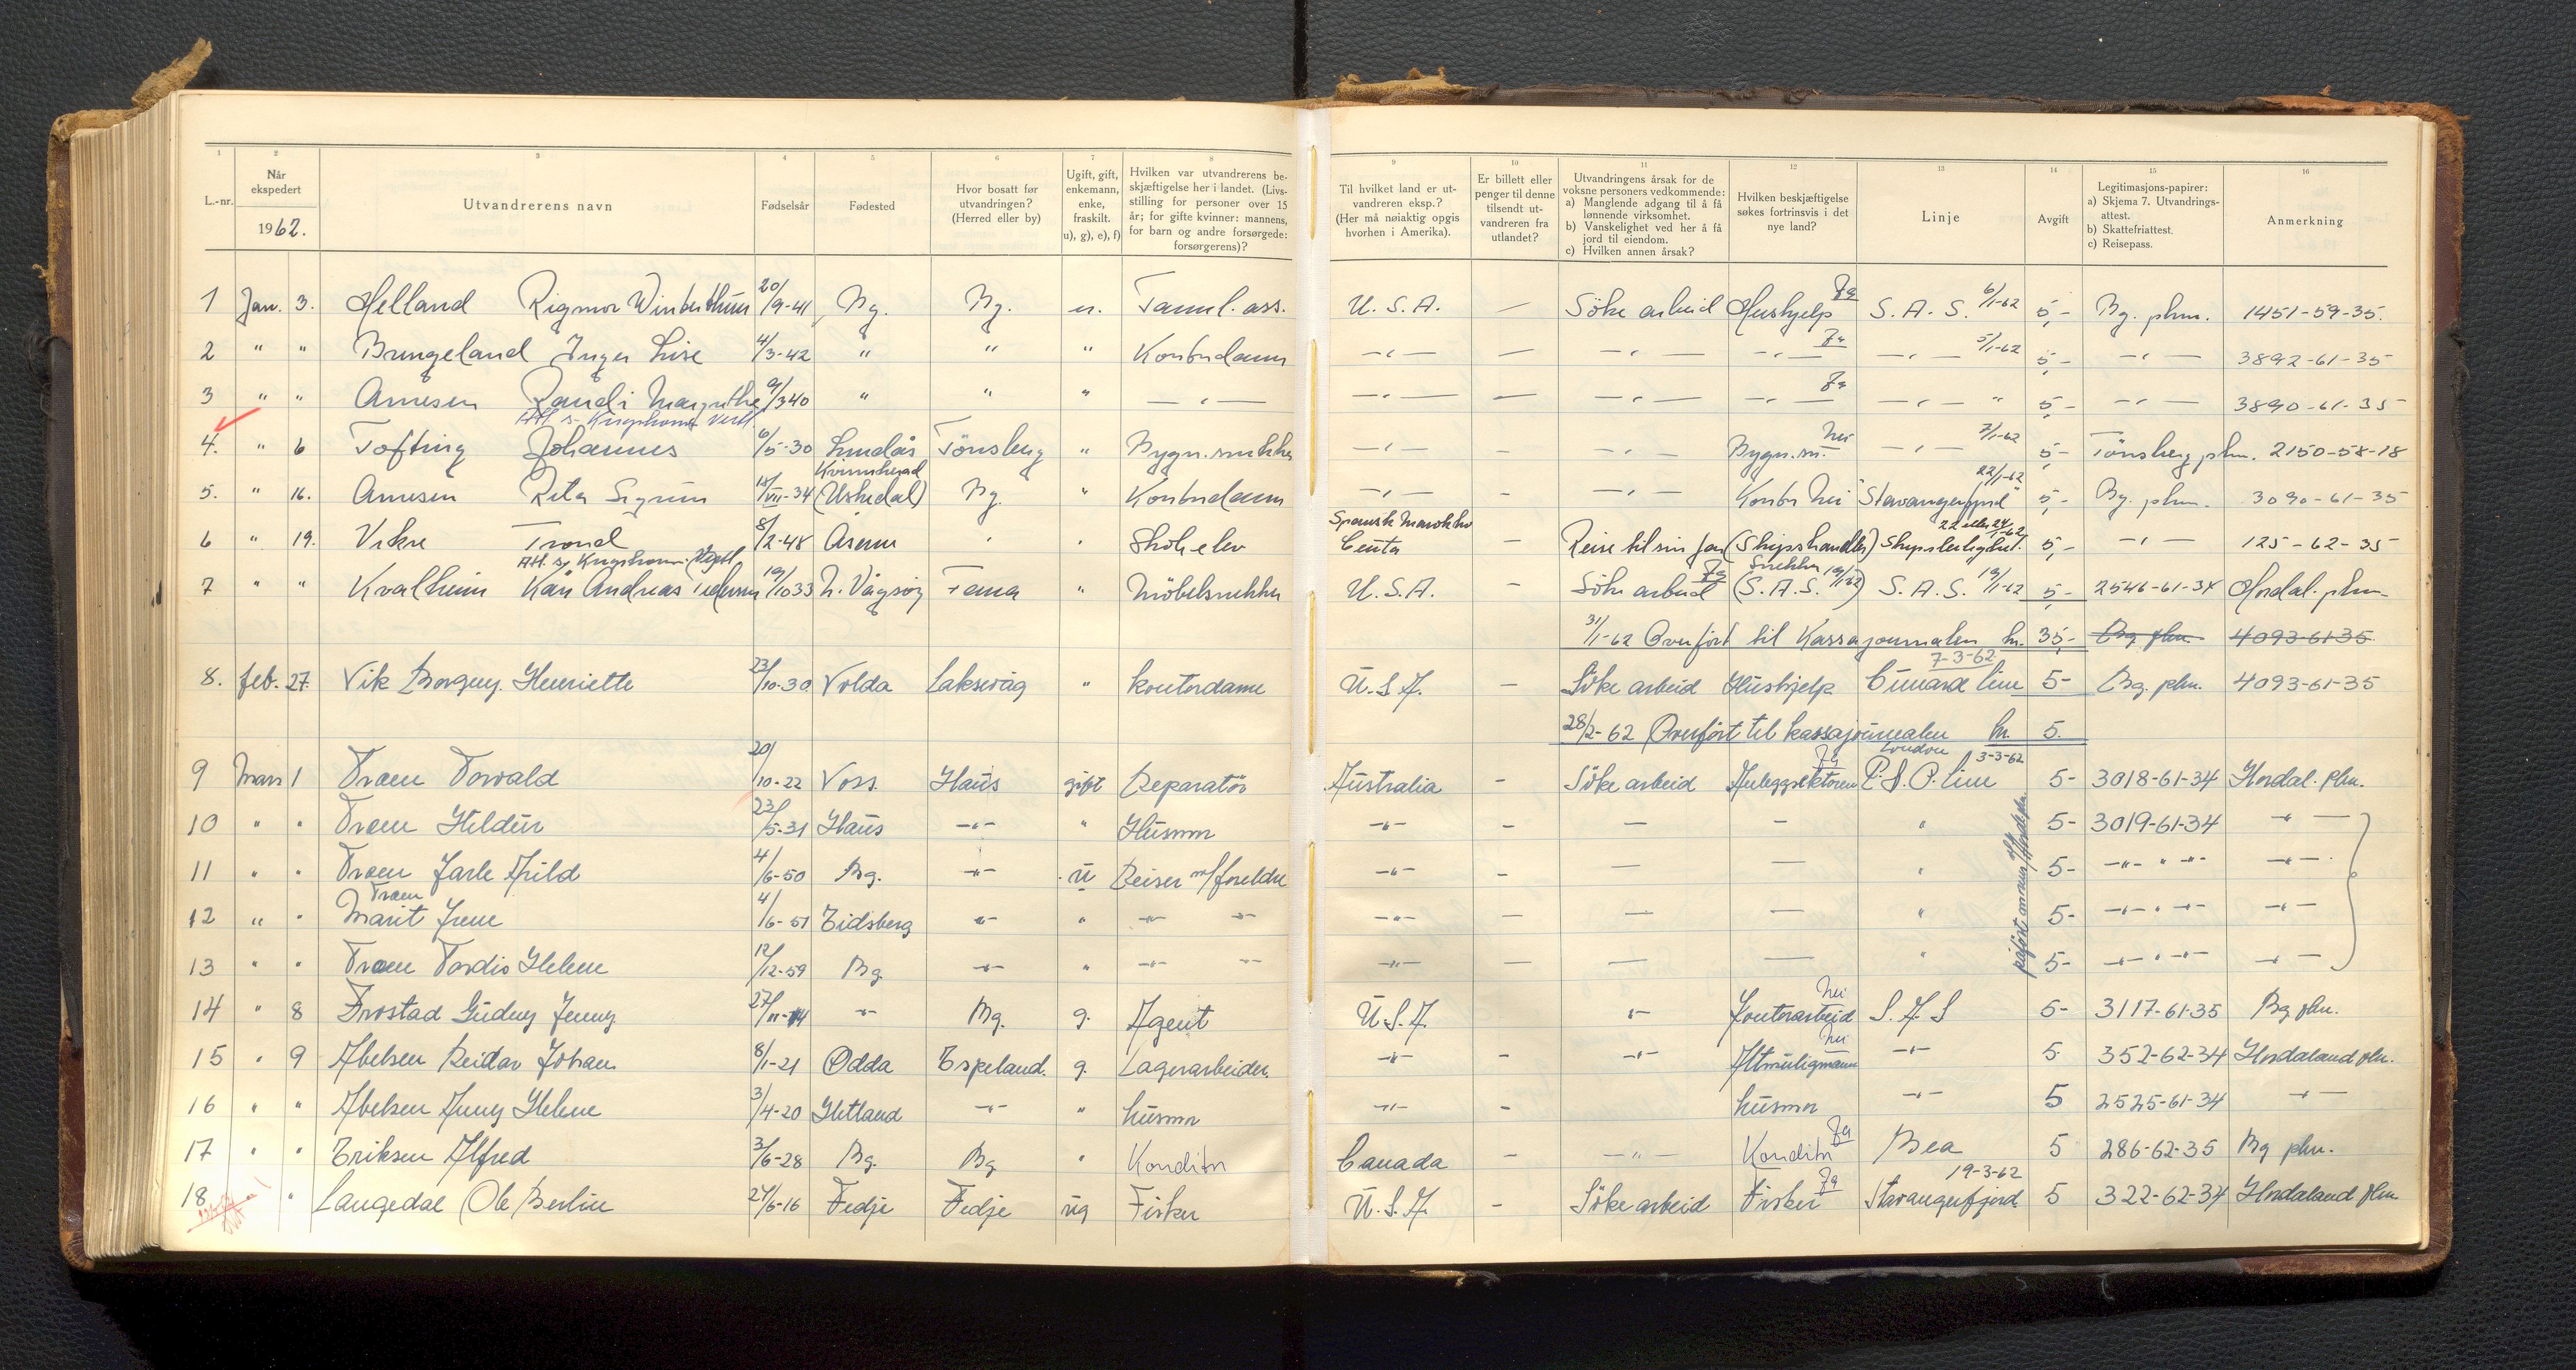 1 2 3 4 5 6 7 8 9 10 11 12 13 14 15 16
L.-nr. | Når ekspedert 1962. | Utvandrerens navn | Fødselsår | Fødested | Hvor bosatt før utvandringen? (Herred eller by) | Ugift, gift, enkemann, enke, fraskilt. u), g), e), f) | Hvilken var utvandrerens beskjæftigelse her i landet. (Livsstilling for personer over 15 år; for gifte kvinner: mannens, for barn og andre forsørgede: forsørgerens)? | Til hvilket land er utvandreren eksp.? (Her må nøiaktig opgis hvorhen i Amerika). | Er billett eller penger til denne tilsendt utvandreren fra utlandet? | Utvandringens årsak for de voksne personers vedkommende: a) Manglende adgang til å få lønnende virksomhet. b) Vanskelighet ved her å få jord til eiendom. c) Hvilken annen årsak? | Hvilken beskjæftigelse søkes fortrinsvis i det nye land? | Linje | Avgift | Legitimasjons-papirer: a) Skjema 7. Utvandringsattest. b) Skattefriattest. c) Reisepass. | Anmerkning
1 Jan. 3. Helland Rigmor Winterthun 20/9-41 Bg. Bg. u. Tannl. ass. U.S.A. — Söke arbeid Hushjelp Ja S.A.S. 6/1-62 5,- Bg. pkm. 1451-59-35.
2 " " Brungeland Inger Lise 4/3-42 " " " Kontordame —"— — —"— —"— Ja —"— 5/1-62 5,- —"— 3892-61-35
3 " " Arnesen Randi Margrethe 9/3 40 " " " —"— —"— — —"— —"— Ja —"— " 5,- —"— 3890-61-35
4. " 6 Tofting Johannes 6/5-30 Lindås Tönsberg " Bygn.snekker —"— – —"— Bygn.sn. Nei —"— 7/1-62 5,- Tönsberg pkm. 2150-58-18
5. " 16. Arnesen Rita Sigrun 12/VII-34 Kvinnherad (Uskedal) Bg. " Kontordame —"— – —"— Kontor Nei "Stavangerfjord" 22/1-62 5,- Bg. pkm. 3090-61-35
6 " 19. Vikse Trond 8/2-48 Asene " " Skoleelev Spansk Marokko Ceuta – Reise til sin far (Skipshandler) Skipsleilighet. 22 eller 24/1-62 5,- —"— 125-62-35
7 " " Kvalheim Kåre Andreas 19/10 33 N. Vågsöy Fana " Möbelsnekker U.S.A. – Söke arbeid Ja Snekker (S.A.S. 19/1-62) S.A.S. 19/1-62 5,- 2546-61-34 Hordal. pkm.
31/1-62 Overfört til Kassajournalen kr. 35,- Bg. pkm. 4093-61-35
8. feb. 27. Vik Borgny Henriette 23/10-30 Volda Laksevåg " kontordame U.S.A. – Söke arbeid Hushjelp Cunard line 7-3-62 5- Bg. pkm. 4093-61-35
28/2-62 Overfört til kassajournalen kr. 5.
9 Mars 1 Træn Torvald 20/10-22 Voss. Haus gift Reparatör Australia – Söke arbeid Anleggsektoren Ja P.&.O. line London 3-3-62 5- 3018-61-34 Hordal. pkm.
10 " " Træn Hildur 23/5-31 Haus —"— " Husmor —"— – — – " 5- 3019-61-34 —"—
11 " " Træn Jarle Arild 4/6-50 Bg. —"— u Reiser m/foreldre —"— – — — " 5- —"— " —"— —"—
12 " " Træn Marit Irene 4/6-51 Eidsberg —"— " —"— —"— —"— — — — " 5- —"— " —"— —"—
13 " " Træn Tordis Helene 12/12-59 Bg. —"— " —"— —"— —"— — — — " 5- —"— " —"— —"—
14 " 8 Frostad Gudny Jenny 27/11-14 —"— Bg. g. Agent U.S.A. "— Kontorarbeid Nei S.A.S 5- 3117-61-35 Bg pkm.
15 " 9 Abelsen Reidar Johan 8/1-21 Odda Espeland. g. Lagerarbeider. —"— – —"— Altmuligmann Nei —"— 5 352-62-34 Hordaland pkm.
16 " " Abelsen Anny Helene 3/4-20 Hetland —"— " husmor —"— – husmor —"— 5 2525-61-34 —"—
17 " " Eriksen Alfred 3/6-28 Bg. Bg " Konditor Canada – —"— Konditor Ja Bea 5 286-62-35 Bg pkm.
18 " Langedal Ole Berlin 24/6-16 Fedje Fedje ug Fisker U.S.A. – Söke arbeid Fisker Ja Stavangerfjord 19-3-62 5 322-62-34 Hordaland pkm